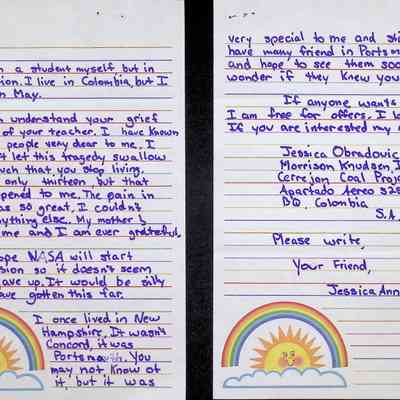 a student myself, but in
ion. I live in Colombia, but I
n May.
understand your grief
of your teacher. I have known
people very dear to me. I
t let this tragedy swallow
uch that you stop living.
only thirteen, but that
pened to me. The pain in
as so great, I couldn't
ything else. My mother &
me and I am ever grateful.
ope NASA will start
sion so it doesn't seem
ave up. It would be silly
ave gotten this far.
I once lived in New
Hampshire. It wasn't
Concord, it was
Portsmouth. You
may not know of
it, but it was
very special to me and sti
have many friend in Portsm
and hope to see them soo
wonder if they knew you
If anyone wants
I am free for offers. I lo
If you are interested my a
Jessica Obradovic
Morrison Knudsen, I
Cerrejon Coal Proje
Apartado Aereo 525
BQ, Colombia
S.A
Please write,
Your Friend,
Jessica Ann